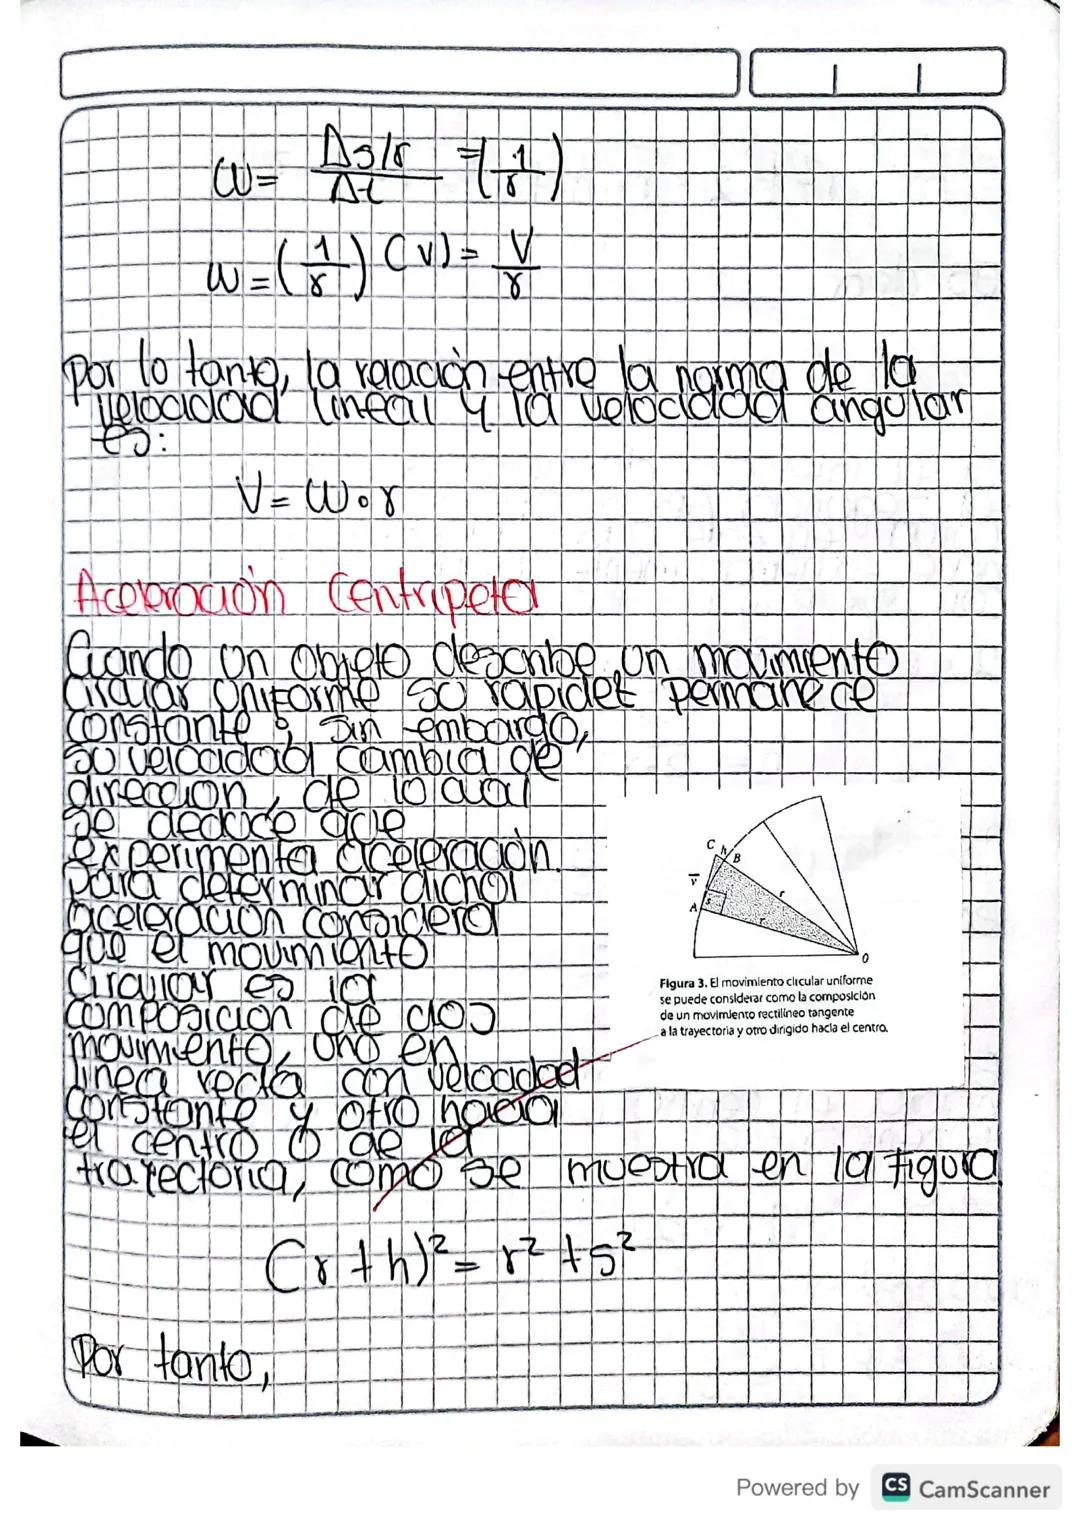 ω= Δs/r / Δt =(1/r)
ω=(1/r) (v)= V/r
Por lo tanto, la relación entre la norma de la
velocidad lineal y la velocidad angular
es:
V= ω∘r
Aceleración Centripeta
Cuando un objeto describe un movimiento
circular uniforme su rapidet permanece
constante; sin embargo,
su velocidad cambia de
dirección, de lo cual
se deduce que
experimenta aceleración.
para determinar dicha
aceleración considera
que el movimiento
circular es la
composición de dos
movimiento, uno en
linea recta con velocidad
constante y otro hacia
el centro O de la
trayectoria, como se muestra en la figura.
C h B
v
A s r r
O
Figura 3. El movimiento circular uniforme
se puede considerar como la composición
de un movimiento rectilíneo tangente
a la trayectoria y otro dirigido hacia el centro.
(r+h)²= r²+s²
Por tanto,
Powered by CS CamScanner